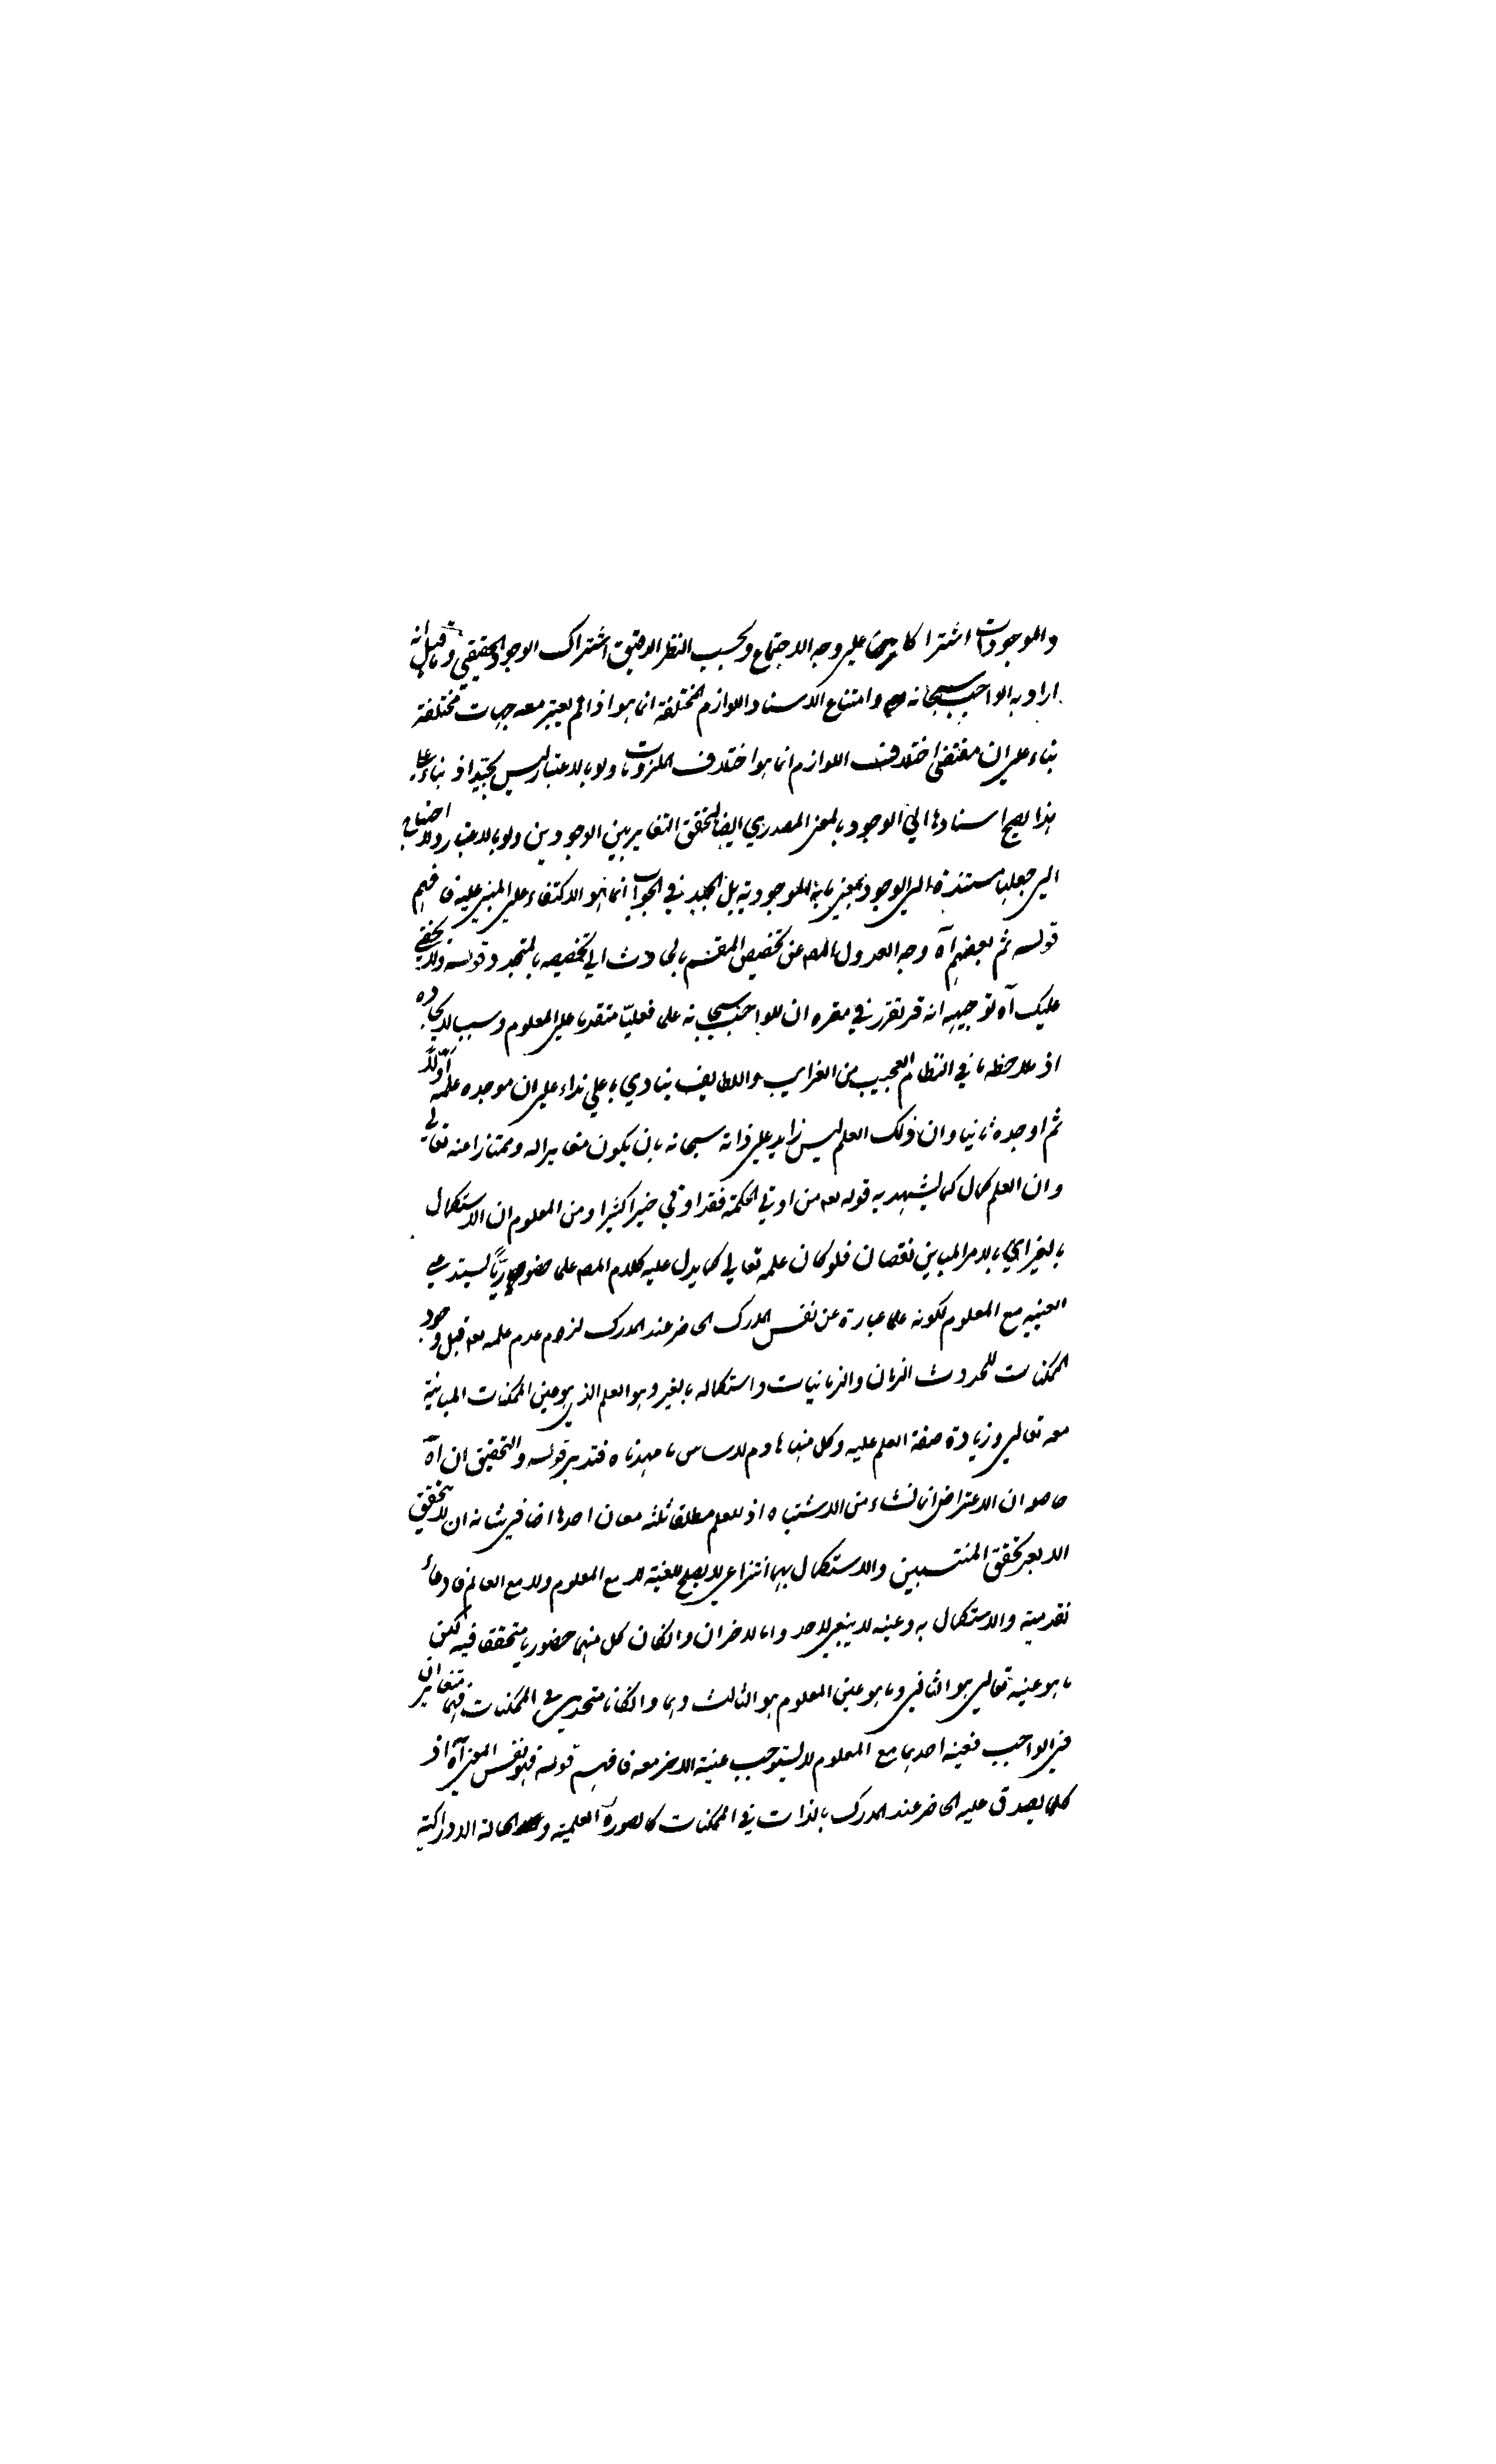 والموجودات اشتراكا على وجه الاجتماع وبحسب النظر الدقيق اشتراك الوجود الحقيقي وما قيل انه
اراد به الواجب سبحانه وامتناع الاسناد اللوازم المختلفة انما هو اذا لم يعتبر معه جهات مختلفة
بناء على ان مقتضى اختلاف اللوازم انما هو اختلاف الملزومات ولو بالاعتبار ليس بجيد اذ بناء على
هذا يصح اسنادها الى الوجود بالمعنى المصدري ايضا لتحقق التغاير بين الوجودين ولو بالاعتبار ولا احتياج
الى جعلها مستندة الى الوجود بمعنى ما به الموجودية بل الجيد في الجواب انما هو الاكتفاء على المبنى عليه فافهم
قوله ثم بعضهم آه وجه العدول المص عن تخصيص المقسم بالحادث الى تخصيصه بالمتجدد قوله ولا يخفى
عليك آه توجيهه انه قد تقرر في مقره ان للواجب سبحانه علما فعليا متقدما على المعلوم وسببا لايجاده
اذ ملاحظة ما في النظام العجيب من الغرايب واللطايف ينادي باعلى نداء على ان موجده علمه اولا
ثم اوجده ثانيا وان ذلك العلم ليس زايد على ذاته سبحانه بان يكون مغايرا له وممتازا عنه تعالى
وان العلم كمال كما يشهد به قوله تعه من اوتي الحكمة فقد اوتي خيرا كثيرا ومن المعلوم ان الاستكمال
بالغير اي بالامر المباين نقصان فلو كان علمه تعالى كما يدل عليه كلام المص علما حضوريا يستدعي
العينية مع المعلوم لكونه علما عبارة عن نفس المدرك الحاضر عند المدرك لزم عدم علمه تعه قبل وجود
الممكنات للحدوث الزمان والزمانيات واستكماله بالغير وهو العلم الذي هو عين الممكنات المباينة
معه تعالى وزيادة صفة العلم عليه وكل منها هادم لاساس ما مهدناه فتدبر قوله والتحقيق ان آه
حاصله ان الاعتراض انما نشاء من الاشتباه اذ للعلم مطلقا ثلثة معان احدها اضافي شانه ان لا يتحقق
الا بعد تحقق المنتسبين والاستكمال بها انتزاعي لا يصلح للعينية لا مع المعلوم ولا مع العالم فادعاء
تقدمه والاستكمال به وعينه لا ينبغي لاحد واما الاخران وان كان كل منهما حضوريا متحققا فيه لكن
ما هو عينه تعالى هو الثاني وما هو عين المعلوم هو الثالث وهما وان كانا متحدين في الممكنات فهما متغايران
في الواجب فعينية احدهما مع المعلوم لا يستوجب عينية الاخر معه فافهم قوله فهو نفس المعنى آه اذ
كلما يصدق عليه الحاضر عند المدرك بالذات في الممكنات كالصورة العلمية والحالة الادراكية